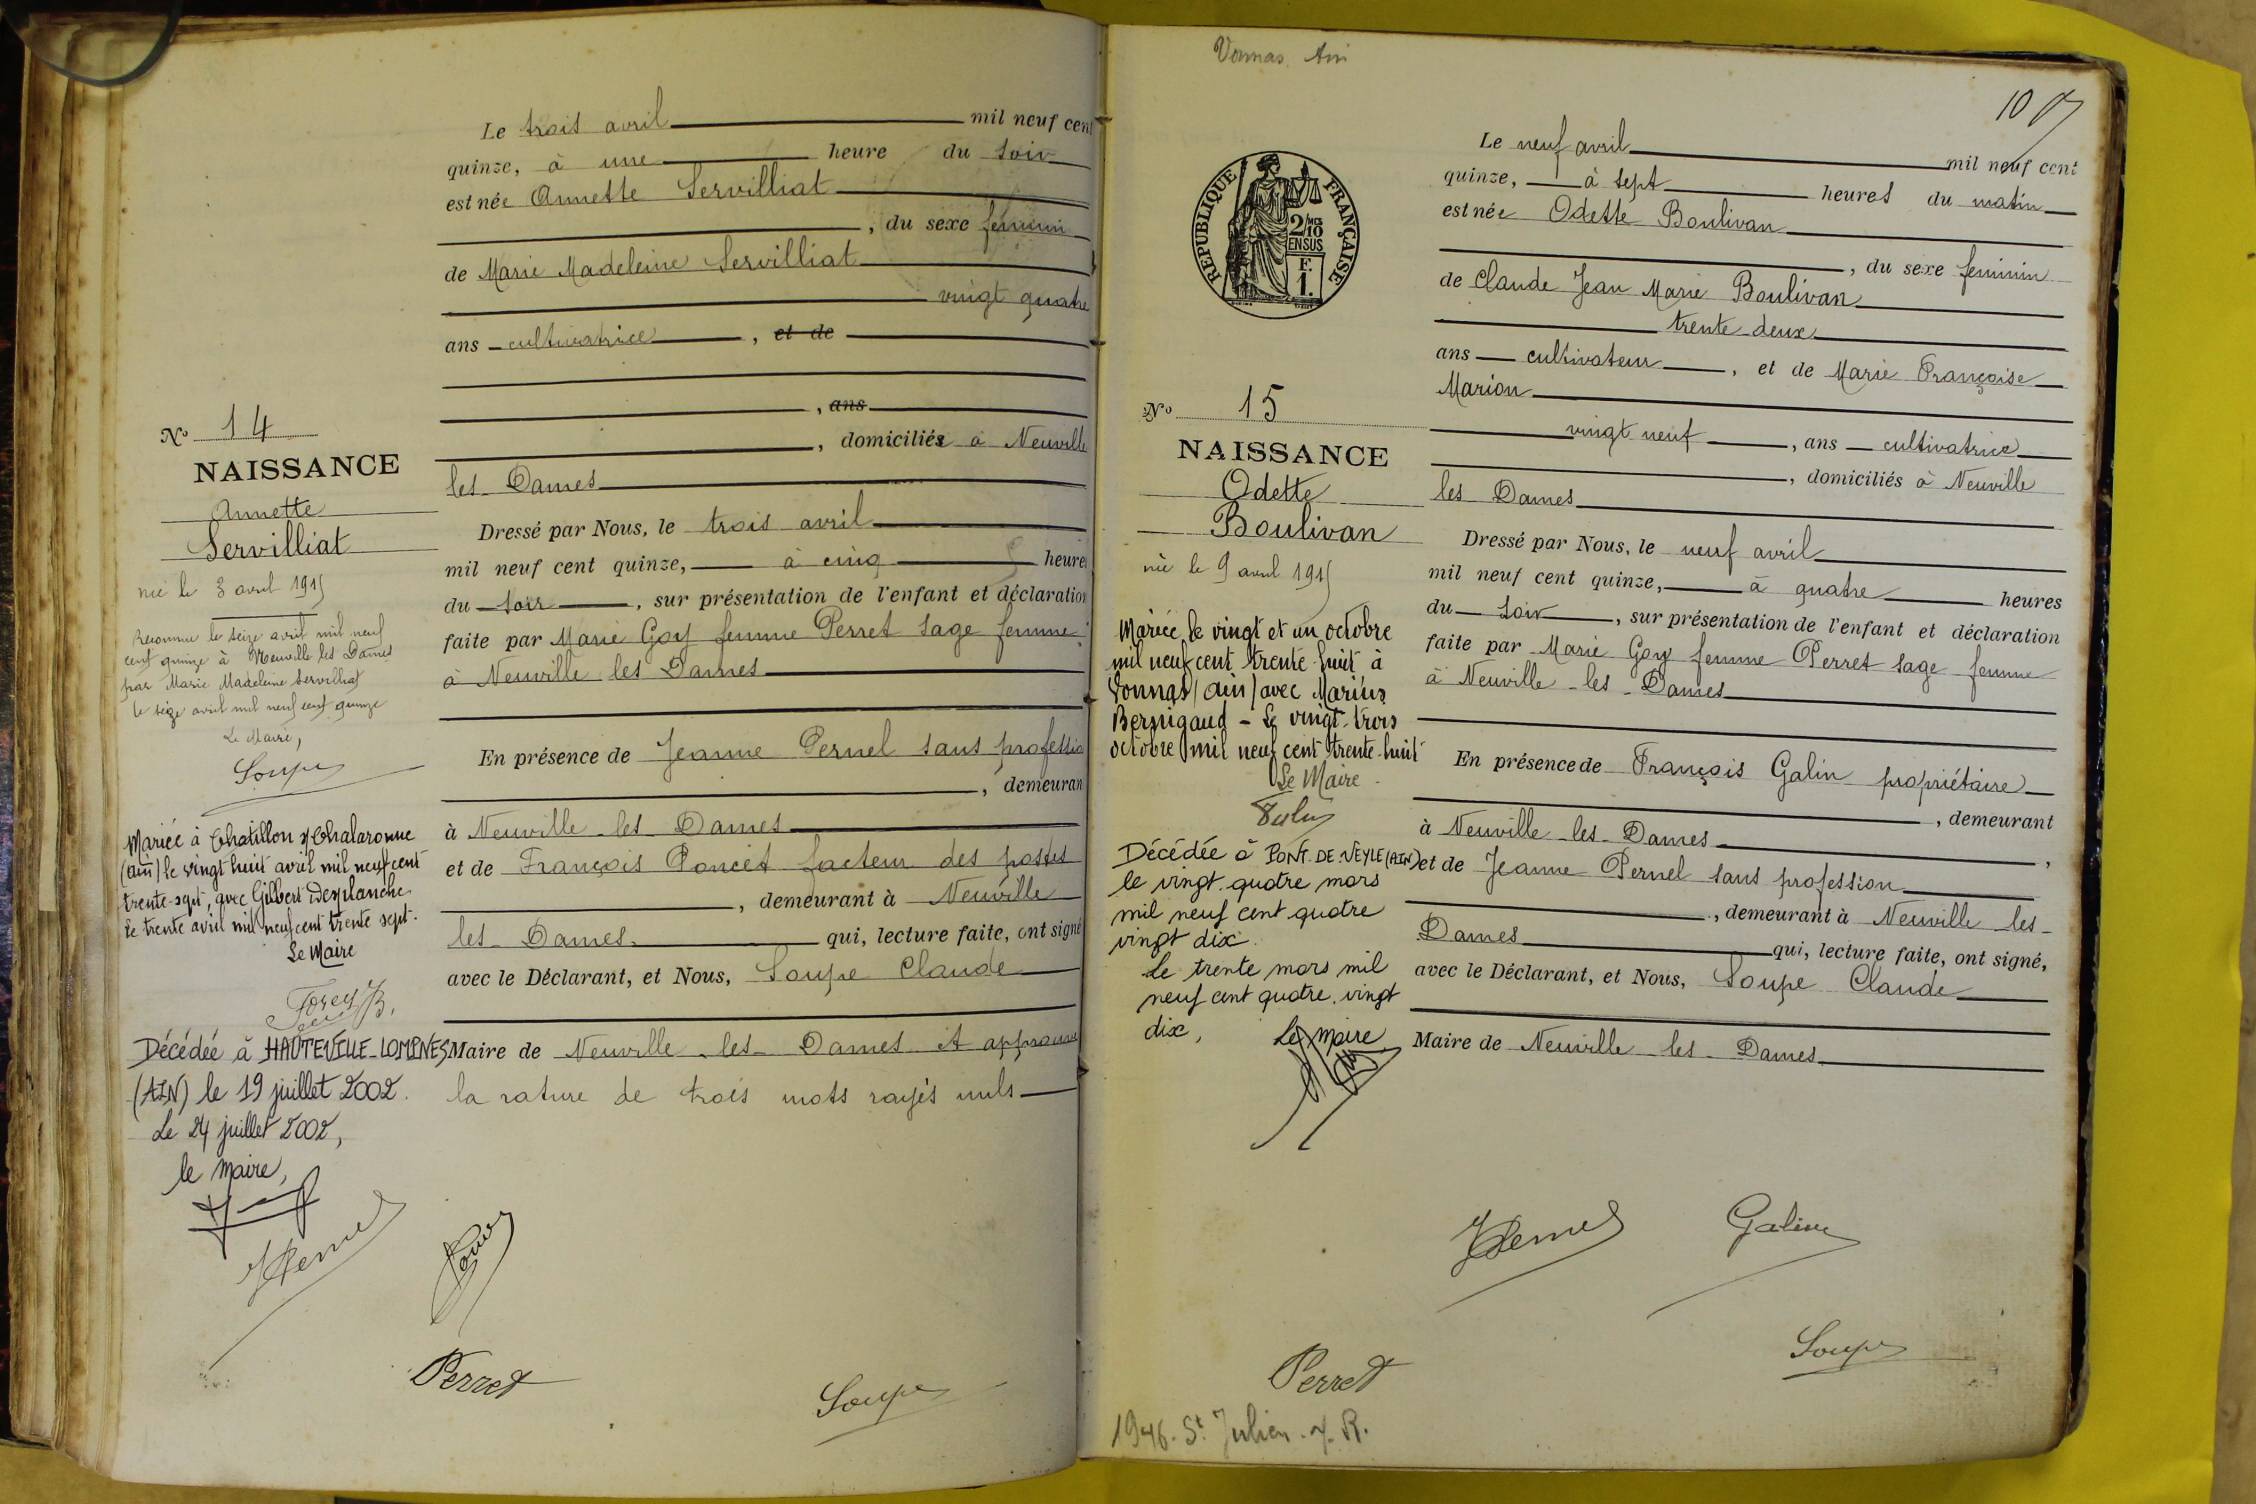 Le trois avril mil neuf cent
quinze, à une heure du soir
est née Annette Servilliat
, du sexe féminin
de Marie Madeleine Servilliat
vingt quatre
ans cultivatrice, et de
, ans
, domiciliée à Neuville
les Dames
Dressé par Nous, le trois avril
mil neuf cent quinze, à cinq heures
du soir, sur présentation de l'enfant et déclaration
faite par Marie Goy femme Perret sage femme
à Neuville les Dames
En présence de Jeanne Pernel sans professio
, demeuran
à Neuville les Dames
et de François Poncet facteur des postes
, demeurant à Neuville
les Dames qui, lecture faite, ont signé
avec le Déclarant, et Nous, Soupe Claude
Maire de Neuville les Dames et approuvé
la rature de trois mots rayés nuls
No 14
NAISSANCE
Annette
Servilliat
née le 3 avril 1915
Reconnue le seize avril mil neuf
cent quinze à Neuville les Dames
par Marie Madeleine Servilliat
le seize avril mil neuf cent quinze
Le Maire,
Soupe
Mariée à Chatillon s/ Chalaronne
(Ain) le vingt huit avril mil neuf cent
trente-sept, avec Gilbert Desplanche
Le trente avril mil neuf cent trente sept.
Le Maire
Décédée à HAUTEVILLE-LOMPNES
(AIN) le 19 juillet 2002.
Le 24 juillet 2002,
le maire,
JPernel
Perret
Soupe
Vonnas Ain
107
RÉPUBLIQUE FRANÇAISE
2/10
EN SUS
F.
1.
No 15
NAISSANCE
Odette
Boulivan
née le 9 avril 1915
Mariée le vingt et un octobre
mil neuf cent trente-huit à
Vonnas (Ain) avec Marius
Bernigaud - Le vingt-trois
octobre mil neuf cent trente-huit
Le Maire
Décédée à PONT-DE-VEYLE (AIN)
le vingt quatre mars
mil neuf cent quatre
vingt dix.
Le trente mars mil
neuf cent quatre vingt
dix,
Le maire
Le neuf avril mil neuf cent
quinze, à sept heures du matin
est née Odette Boulivan
, du sexe féminin
de Claude Jean Marie Boulivan
trente-deux
ans cultivateur, et de Marie Françoise
Marion
vingt neuf, ans cultivatrice
, domiciliés à Neuville
les Dames
Dressé par Nous, le neuf avril
mil neuf cent quinze, à quatre heures
du soir, sur présentation de l'enfant et déclaration
faite par Marie Goy femme Perret sage femme
à Neuville-les-Dames
En présence de François Galin propriétaire
, demeurant
à Neuville-les-Dames,
et de Jeanne Pernel sans profession
, demeurant à Neuville les-
Dames qui, lecture faite, ont signé,
avec le Déclarant, et Nous, Soupe Claude
Maire de Neuville les Dames
JPernel
Galin
Perret
Soupe
1946. St Julien s. R.